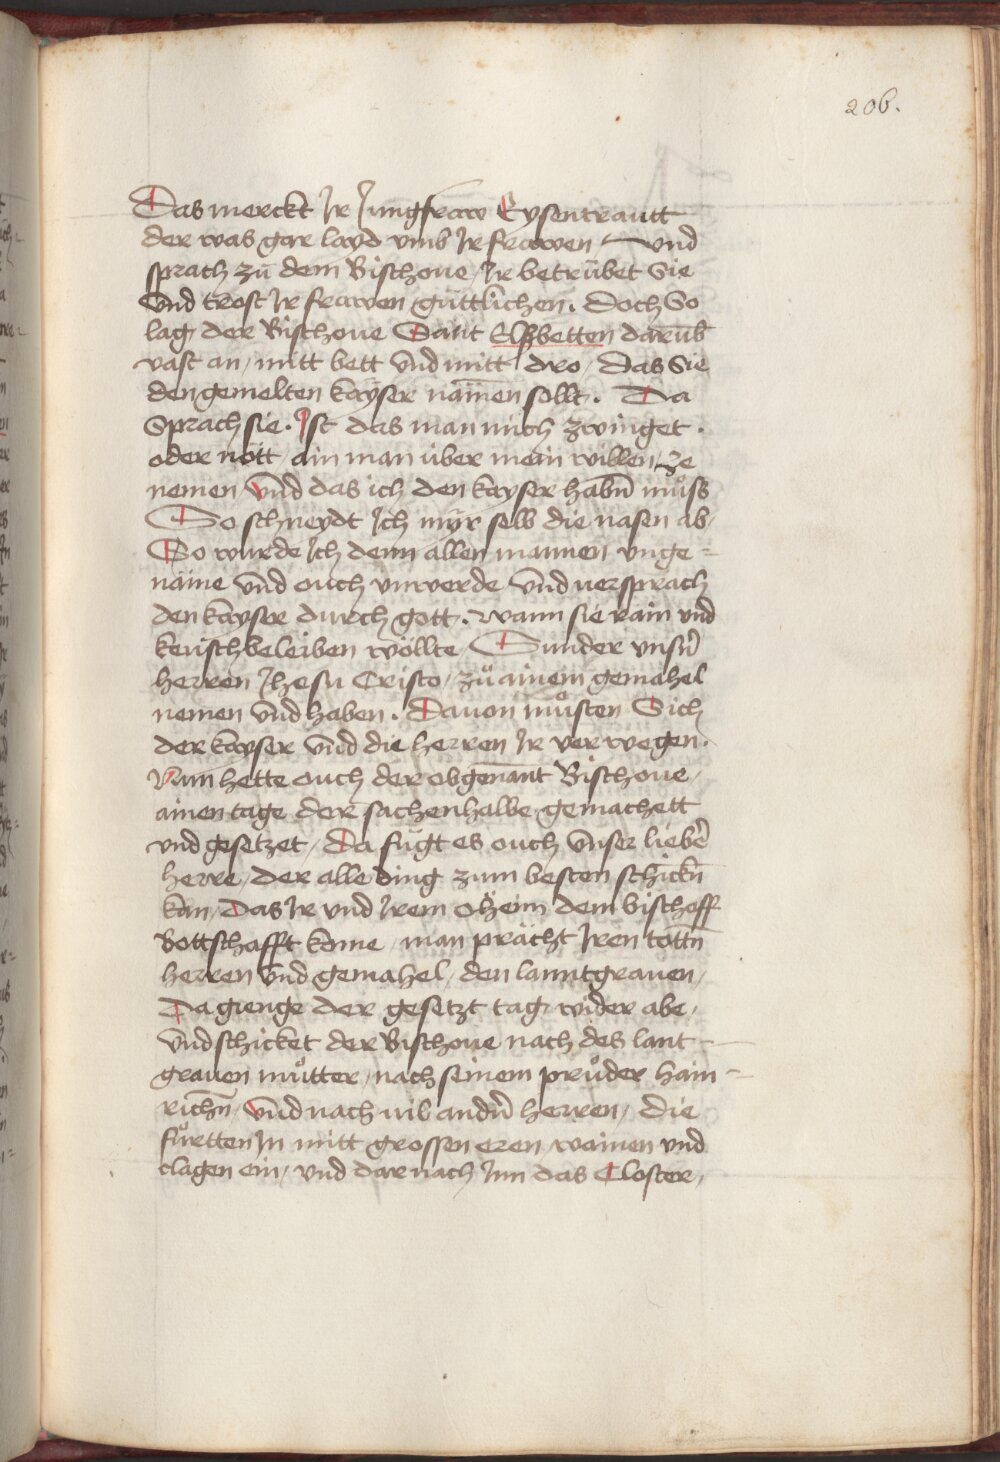 206.
Das merckt Ir Jungfraw Eysentrautt
der was gar layd vmb Ir frawen vnd
sprach zü dem Bischoue / Ir betrübet Sie
vnd trost Ir frawen güttlichen. Doch So
lag der Bischoue Sant Elsbetten darūb
vast an / mitt bett vnd mitt dro / das Sie
den gemelten kayser nämen sollt. Da
Sprach sie. Ist das man mich zwinget.
oder nött ain man über mein willen ze
nemen vnd das ich den kayser habn̄ müss
So schneydt Ich myr selb die nasen ab /
So wurde Ich denn allen mannen vnge=
näme vnd ouch vnwerde vnd versprach
den kayser durch gott. wann sie rain vnd
keusch beleiben wöllte / Sunder vnsn̄
herren Jhesu Cristo / zů ainem gemahel
nemen vnd haben. Dauon můsten Sich
der kayser vnd die herren Ir verwegen.
Nun hette ouch der obgenant Bischoue /
ainen tage der sachenhalbe gemachett
vnd gesetzet / Da fügt es ouch vnser lieber
herre / der alle ding zum besten schickn̄
kan / Das Ir vnd Irem öheim dem bischoff
Bottschafft kome / man prächt Iren tottn̄
herren vnd gemahel / den lanntgrauen /
Da gienge der gesetzt tag wider abe /
vnd schicket der Bischoue nach des lant=
grauen můtter / nach seinem průder hain=
richn̄ / vnd nach vil andn̄ herren / die
fůrtten In mitt grossen eren / wainen vnd
clagen ein / vnd darnach Inn das Closter /